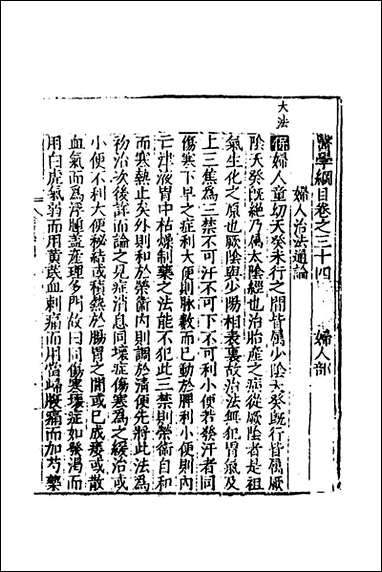 醫學綱目卷之三十四　婦人部
婦人治法通論
大法
保婦人童幼天癸未行之間皆屬少陰天癸旣行皆屬厥
陰天癸旣絶乃屬太陰經也治胎產之症從厥陰者是祖
氣生化之原也厥陰與少陽相表裏故治法無犯胃氣及
上三焦爲三禁不可汗不可下不可利小便若發汗者同
傷寒下早之症利大便則脉數而已動於脾利小便則內
亡津液胃中枯燥制藥之法能不犯此三禁則榮衛自和
而寒熱止矣外則和於榮衛內則調於清便先將此法爲
初治次後詳而論之見症消息同壞症傷寒爲之緩治或
小便不利大便秘結或積熱於腸胃之間或已成痿或散
血氣而爲浮腫蓋產理多門故曰同傷寒壞症如發渴而
用白虎氣弱而用黃芪血刺痛而用當歸腹痛而加芍藥